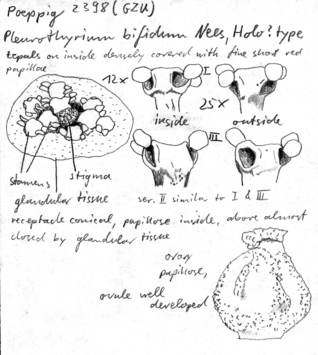 Poeppig 2398 (GZU)
Pleurothyrium bifidum Nees, Holo?type
tepals on inside densely covered with fine short red
papillae
12x
I
25x
inside
outside
III
stamens
stigma
glandular tissue
ser. II similar to I & III
receptacle conical, papillose inside, above almost
closed by glandular tissue
ovary
papillose,
ovule well
developed